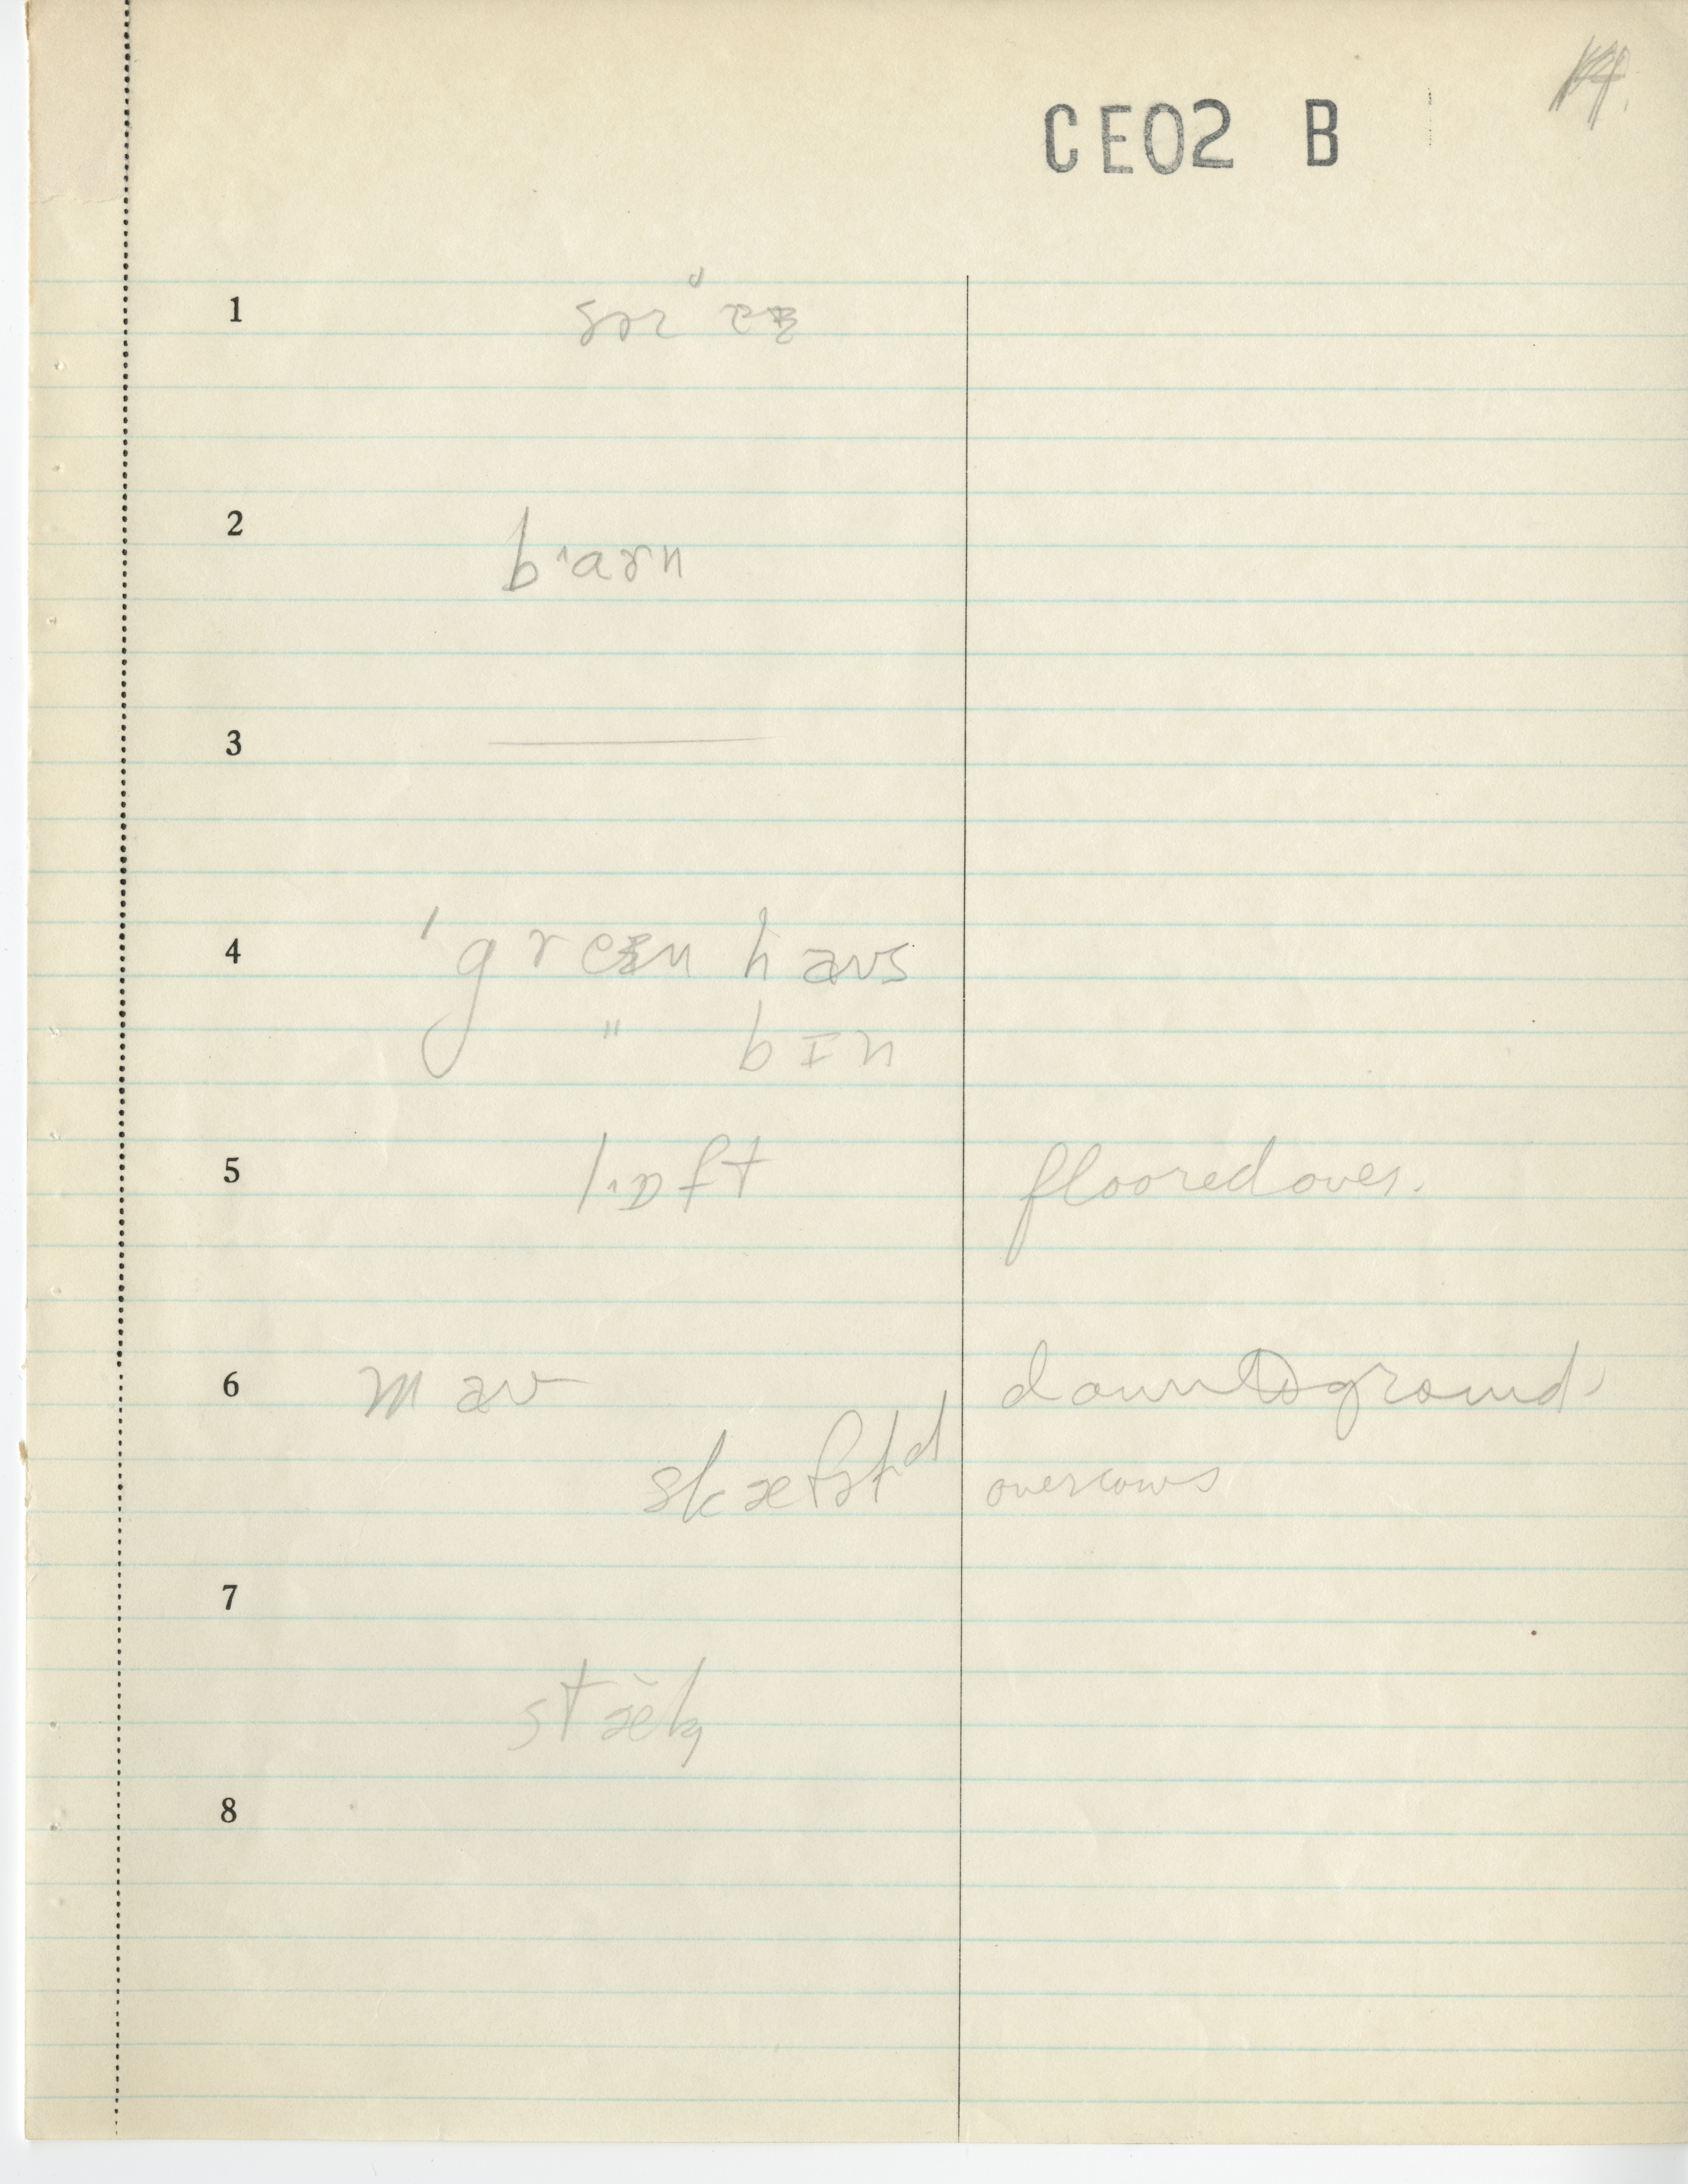 14.
CE02 B
1
2 bˑarn
3
4 'greɪn haʊs
" bɪn
5 lˑɒft floored over.
6 maʊ down to ground
skæfəld over cows
7
stæk
8